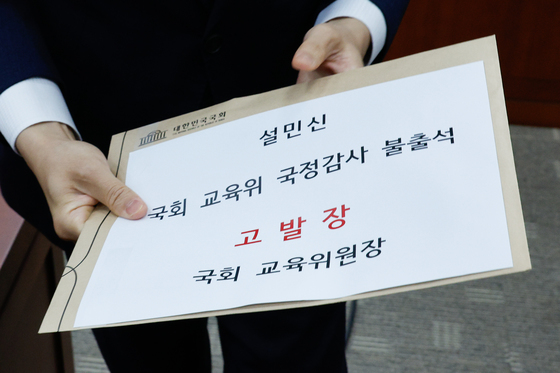 대한민국국회
설민신
국회 교육위 국정감사 불출석
고발장
국회 교육위원장